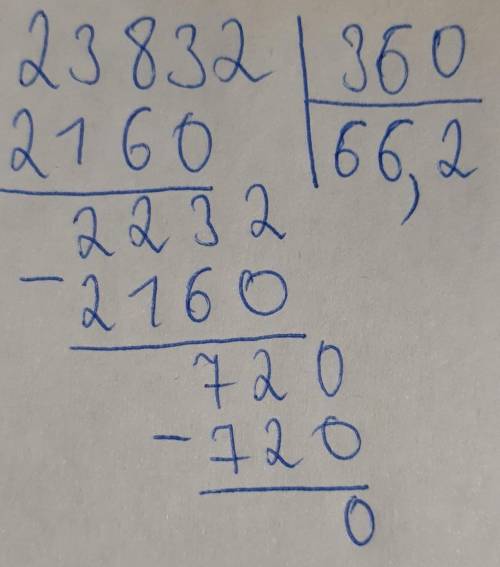 23832 360
2160 66,2
2232
- 2160
720
- 720
0